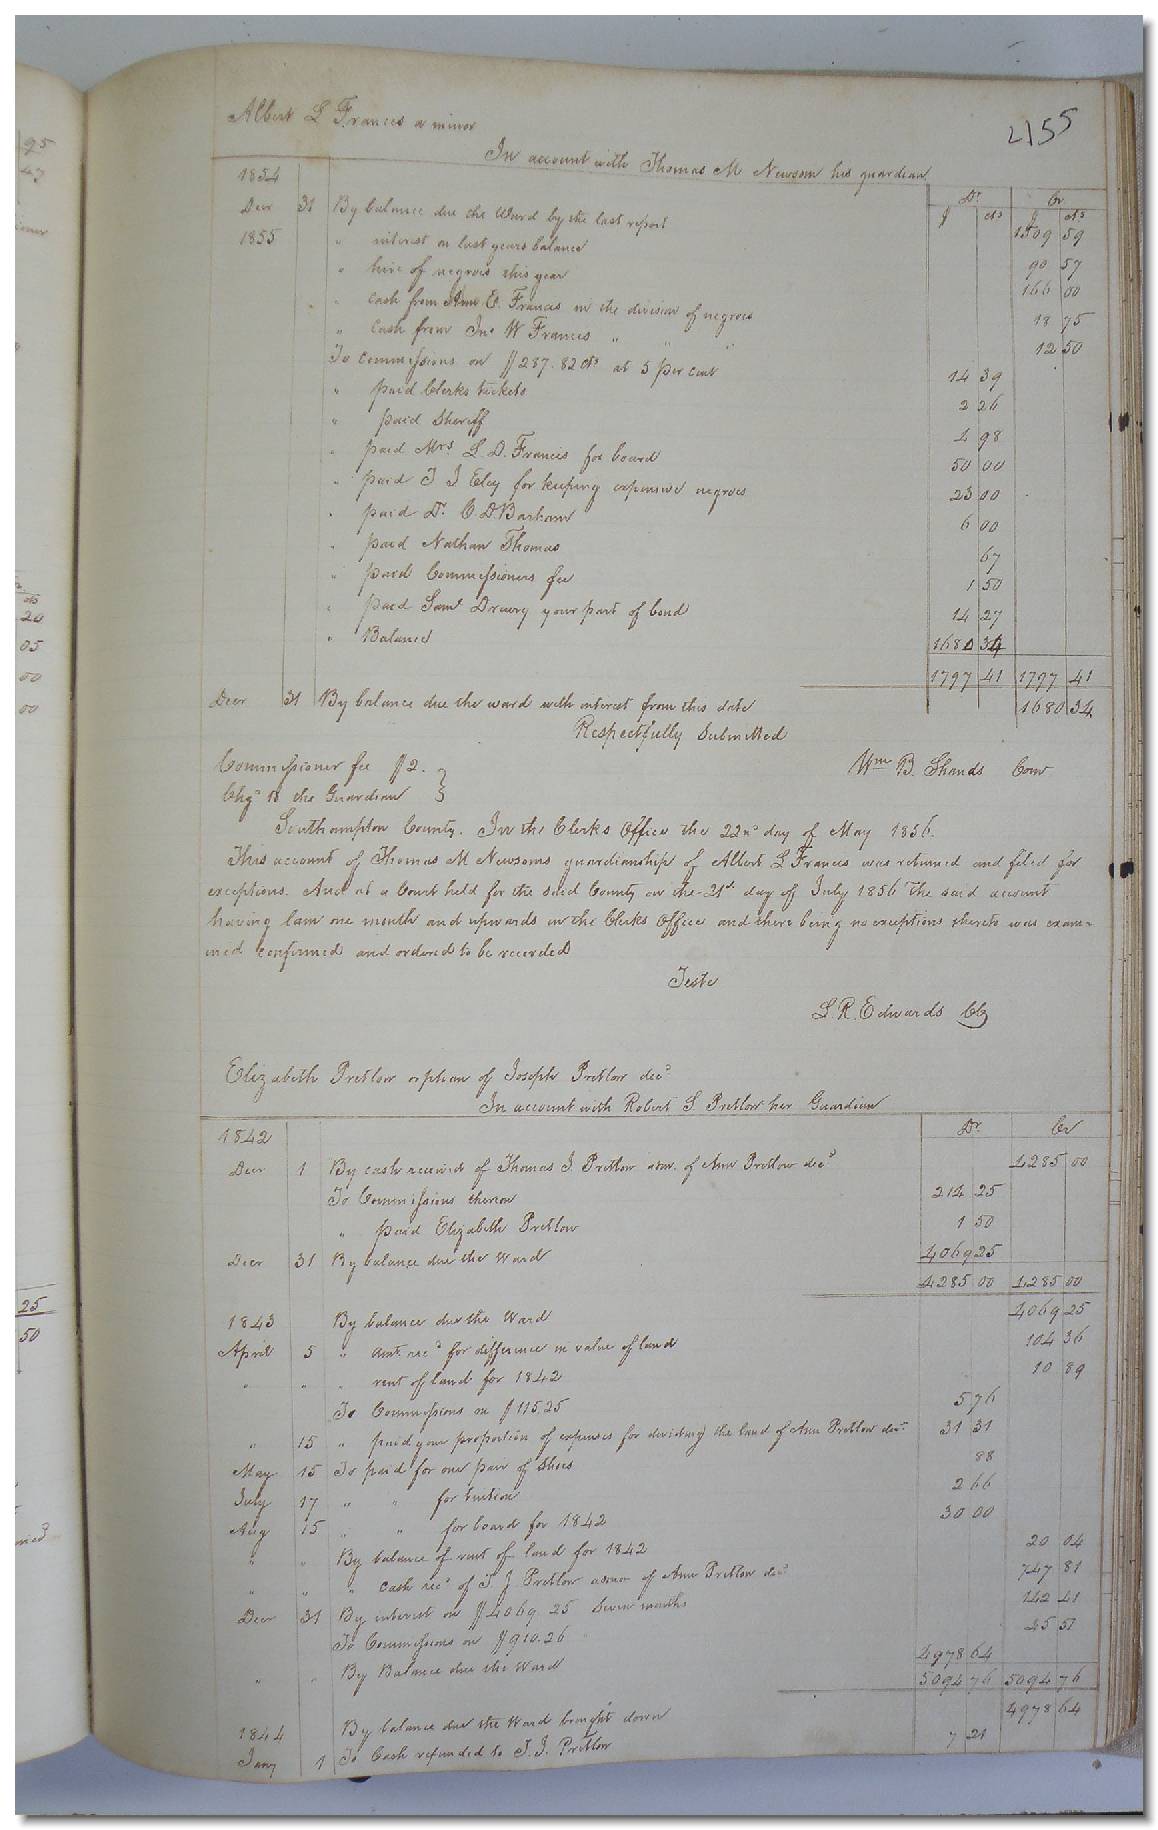 Albert L Francis a minor
2155
In account with Thomas M Newsom his guardian
1854 Dr Cr
$ cts $ cts
Decr 31 By balance due the Ward by the last report 1509 59
1855 " interest on last years balance 90 57
" hire of negroes this year 166 00
" cash from Ann E. Francis in the division of negroes 18 75
" Cash from Jno W Francis " " " 12 50
To commissions on $287.82 cts at 5 per cent 14 39
" paid Clerks tickets 2 26
" paid Sheriff 4 98
" paid Mrs L. D. Francis for board 50 00
" paid J J Eley for keeping expensive negroes 23 00
" paid Dr C D Barham 6 00
" paid Nathan Thomas 67
" paid Commissioners fee 1 50
" paid Saml Drewry your part of bond 14 27
" Balance 1680 34
1797 41 1797 41
Decr 31 By balance due the ward with interest from this date 1680 34
Respectfully Submitted
Commissioner fee $2. Wm B. Shands Comr
Chgd to the Guardian
Southampton County. In the Clerks Office the 22nd day of May 1856.
This account of Thomas M Newsoms guardianship of Albert L Francis was returned and filed for
exceptions. And at a Court held for the said County on the 21st day of July 1856 The said account
having lain one month and upwards in the Clerks Office and there being no exceptions thereto was exam-
ined confirmed and ordered to be recorded
Teste
L. R. Edwards Clk
Elizabeth Pretlow orphan of Joseph Pretlow decd
In account with Robert S Pretlow her Guardian
1842 Dr Cr
Decr 1 By cash received of Thomas J. Pretlow adm. of Ann Pretlow decd 4285 00
To Commissions thereon 214 25
" paid Elizabeth Pretlow 1 50
Decr 31 By balance due the Ward 4069 25
4285 00 4285 00
1843 By balance due the Ward 4069 25
April 5 " amt. recd for difference in value of land 104 36
" " " rent of land for 1842 10 89
To Commissions on $115.25 5 76
" 15 " paid your proportion of expenses for dividing the land of Ann Pretlow decd 31 31
May 15 To paid for one pair of shoes 88
July 17 " " for tuition 2 66
Aug 15 " " for board for 1842 30 00
" " By balance of rent of land for 1842 20 04
" " " cash recd of T. J Pretlow admor of Ann Pretlow decd 747 81
Decr 31 By interest on $4069 25 Seven months 142 41
To Commissions on $910.26 45 51
" " By Balance due the Ward 4978 64
5094 76 5094 76
By balance due the Ward brought down 4978 64
1844
Jany 1 To Cash refunded to T. J. Pretlow 7 21
95
47
cts
20
05
00
00
25
50